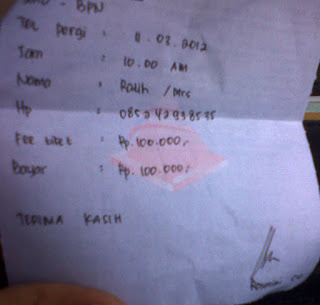 - BPN
Tgl pergi : 11.03.2012
Jam : 10.00 AM
Nama : Ratih / Mrs
Hp :
Fee tiket : Rp. 100.000,-
Bayar : Rp. 100.000,-
TERIMA KASIH